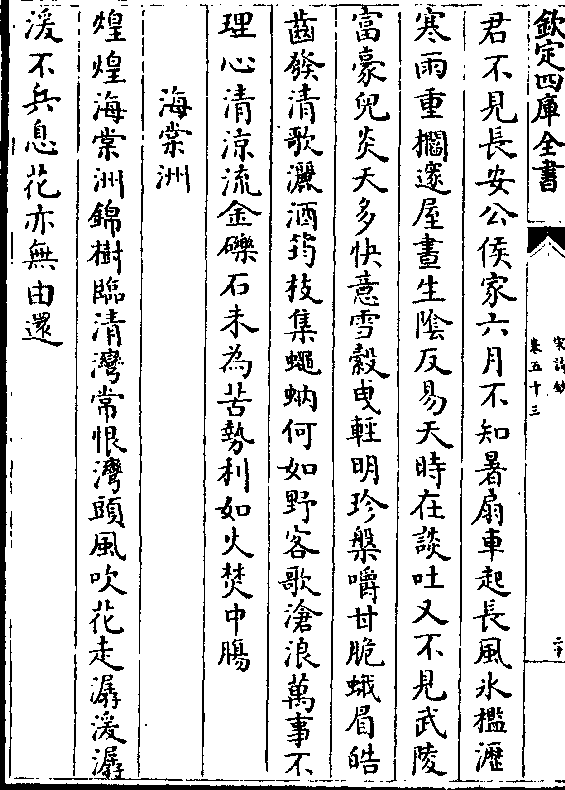 欽定四庫全書
宋詩鈔
卷五十三
二十
君不見長安公侯家六月不知暑扇車起長風氷檻瀝
寒雨重櫩邃屋晝生隂反易天時在談吐又不見武陵
富豪兒炎天多快意雪縠曳輕明珍槃嚼甘脆蛾眉皓
齒發清歌灑酒筠枝集蠅蚋何如野客歌滄浪萬事不
理心清涼流金礫石未為苦勢利如火焚中膓
海棠洲
煌煌海棠洲錦樹臨清灣常恨灣頭風吹花走潺湲潺
湲不兵息花亦無由還